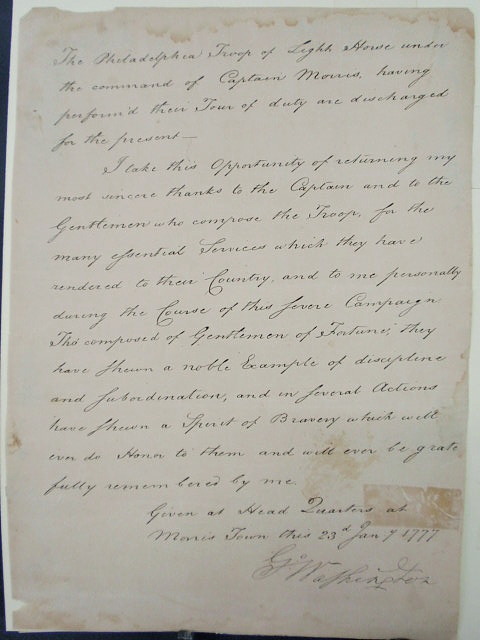 The Philadelphia Troop of Light Horse under
the command of Captain Morris, having
perform'd their Tour of duty are discharged
for the present—
I take this Opportunity of returning my
most sincere thanks to the Captain and to the
Gentlemen who compose the Troop, for the
many essential Services which they have
rendered to their Country, and to me personally
during the Course of this severe Campaign.
Tho' composed of Gentlemen of Fortune, they
have shewn a noble Example of discipline
and subordination, and in several Actions
have shewn a Spirit of Bravery which will
ever do Honor to them and will ever be grate
fully remembered by me.
Given at Head Quarters at
Morris Town this 23d Jany 1777
Go Washington